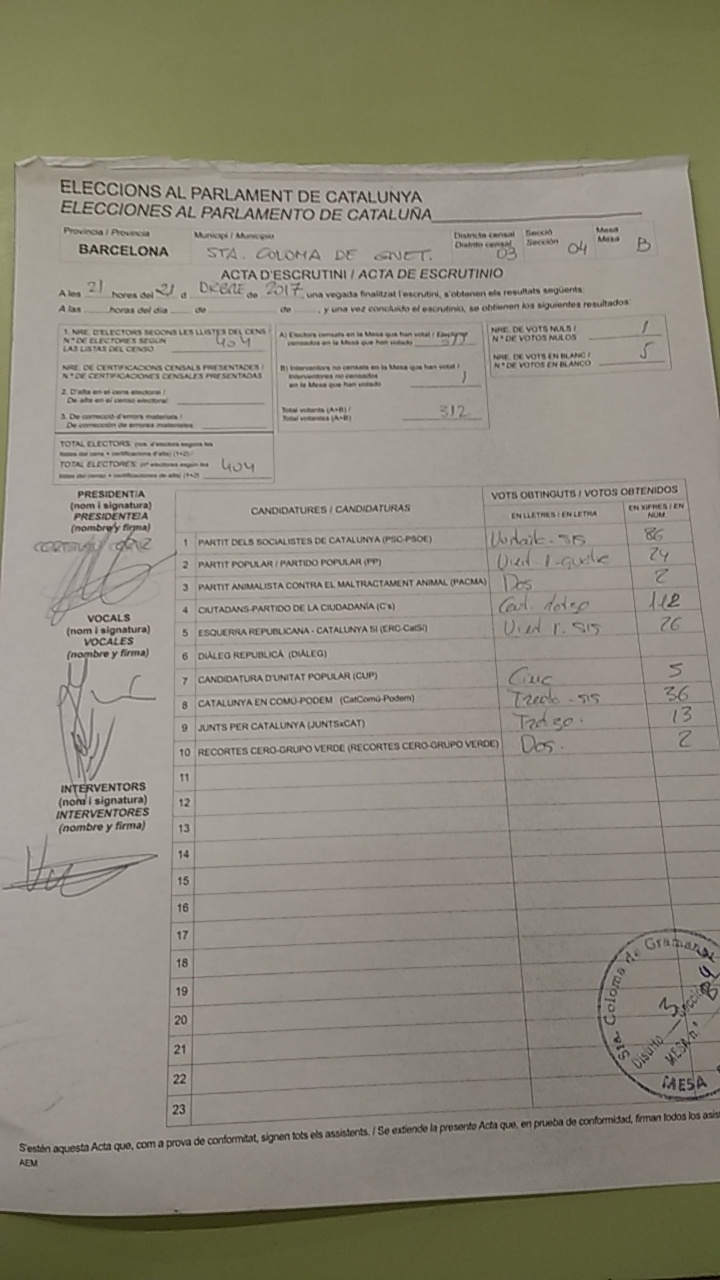 ELECCIONS AL PARLAMENT DE CATALUNYA
ELECCIONES AL PARLAMENTO DE CATALUÑA
Província / Provincia Municipi / Municipio Districte censal Secció Mesa
Distrito censal Sección Mesa
BARCELONA STA. COLOMA DE GNET. 03 04 B
ACTA D'ESCRUTINI / ACTA DE ESCRUTINIO
A les 21 hores del 21 d DRBRE de 2017, una vegada finalitzat l'escrutini, s'obtenen els resultats següents:
A las hores del día de de , y una vez concluido el escrutinio, se obtienen los siguientes resultados:
1. NRE. D'ELECTORS SEGONS LES LLISTES DEL CENS /
N.º DE ELECTORES SEGÚN
LAS LISTAS DEL CENSO 404
NRE. DE CERTIFICACIONS CENSALS PRESENTADES /
N.º DE CERTIFICACIONES CENSALES PRESENTADAS
2. D'alta en el cens electoral /
De alta en el censo electoral
3. De correcció d'errors materials /
De corrección de errores materiales
TOTAL ELECTORS
TOTAL ELECTORES 404
A) Electors censats en la Mesa que han votat /
censados en la Mesa que han votado
B) Interventors no censats en la Mesa que han votat /
Interventores no censados
en la Mesa que han votado 1
Total votants (A+B) /
Total votantes (A+B) 312
NRE. DE VOTS NULS /
N.º DE VOTOS NULOS 1
NRE. DE VOTS EN BLANC /
N.º DE VOTOS EN BLANCO 5
PRESIDENT/A
(nom i signatura)
PRESIDENTE/A
(nombre y firma)
VOCALS
(nom i signatura)
VOCALES
(nombre y firma)
INTERVENTORS
(nom i signatura)
INTERVENTORES
(nombre y firma)
CANDIDATURES / CANDIDATURAS VOTS OBTINGUTS / VOTOS OBTENIDOS
EN LLETRES / EN LETRA EN XIFRES / EN NÚM.
1 PARTIT DELS SOCIALISTES DE CATALUNYA (PSC-PSOE) 86
2 PARTIT POPULAR / PARTIDO POPULAR (PP) 24
3 PARTIT ANIMALISTA CONTRA EL MALTRACTAMENT ANIMAL (PACMA) Dos 2
4 CIUTADANS-PARTIDO DE LA CIUDADANÍA (C's) 112
5 ESQUERRA REPUBLICANA - CATALUNYA SÍ (ERC-CatSí) 26
6 DIÀLEG REPUBLICÀ (DIÀLEG)
7 CANDIDATURA D'UNITAT POPULAR (CUP) Cinc 5
8 CATALUNYA EN COMÚ-PODEM (CatComú-Podem) 36
9 JUNTS PER CATALUNYA (JUNTSxCAT) 13
10 RECORTES CERO-GRUPO VERDE (RECORTES CERO-GRUPO VERDE) Dos. 2
11
12
13
14
15
16
17
18
19
20
21
22
23
Sta. Coloma de Gramanet
Distrito 3 Sección 4
MESA n.º B
MESA
S'estén aquesta Acta que, com a prova de conformitat, signen tots els assistents. / Se extiende la presente Acta que, en prueba de conformidad, firman todos los
AEM